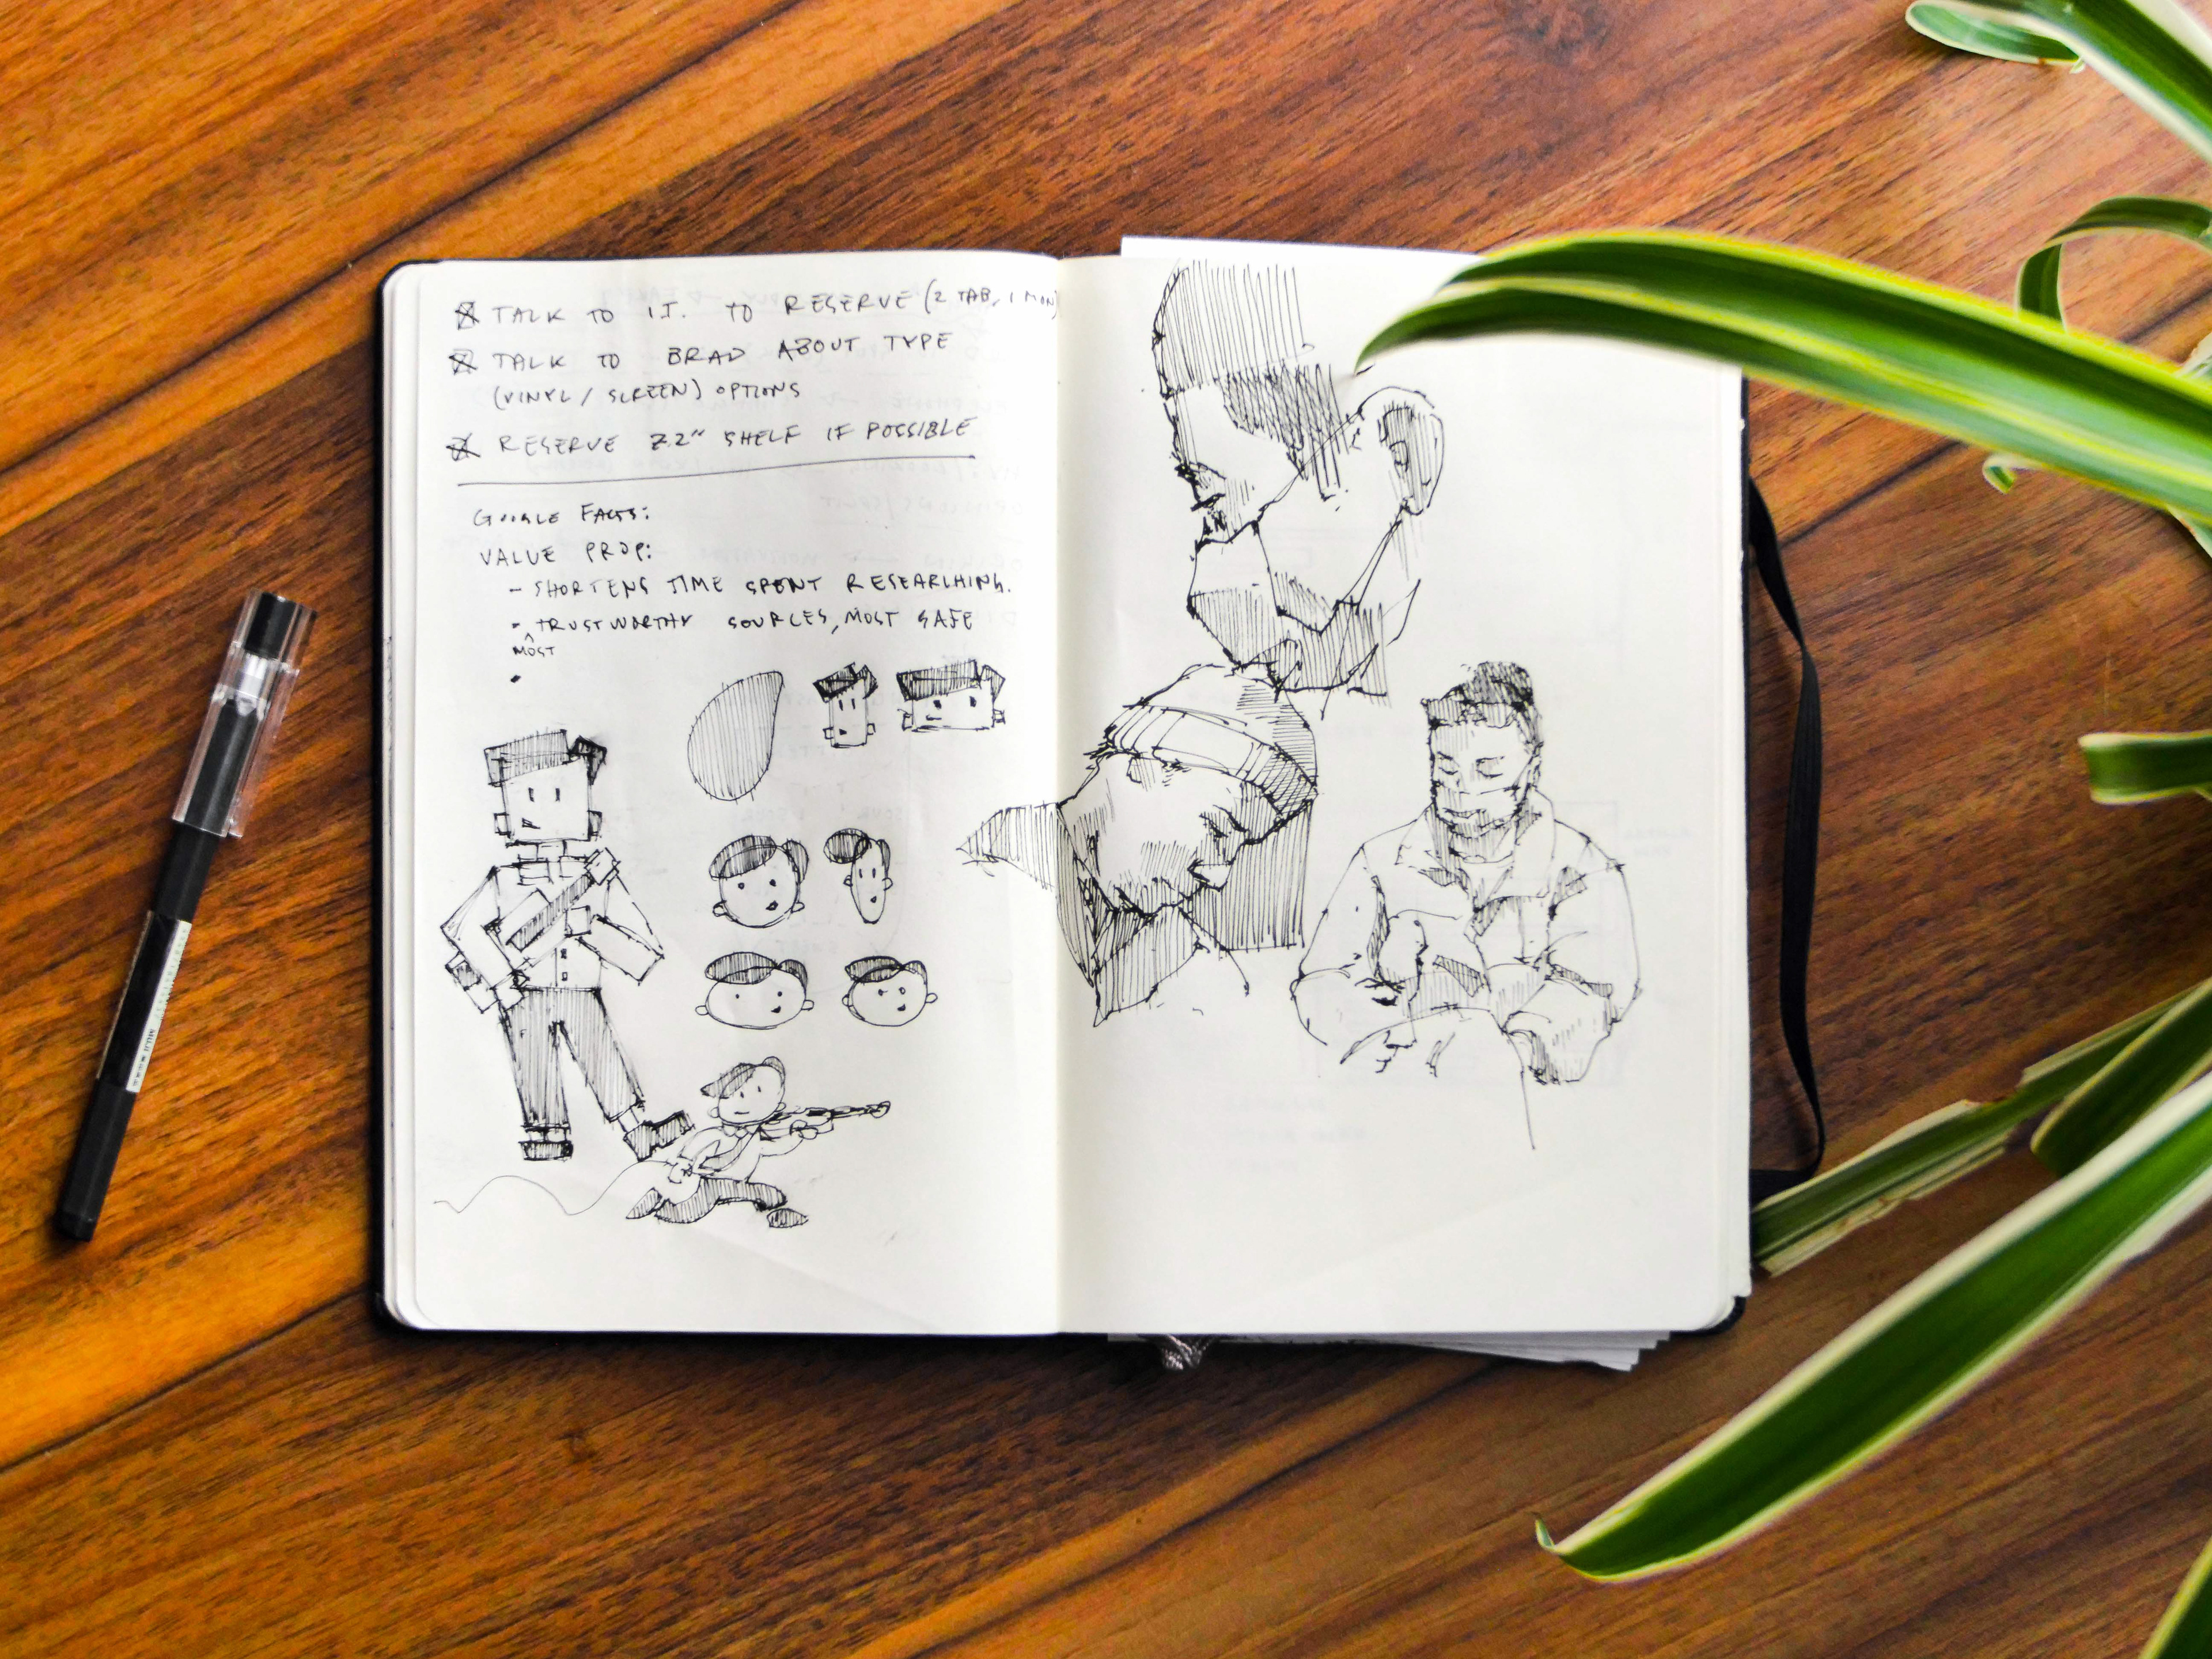 TALK TO I.T. TO RESERVE (2 TAB, 1 MON)
TALK TO BRAD ABOUT TYPE
(VINYL / SCREEN) OPTIONS
RESERVE 72" SHELF IF POSSIBLE
GOOGLE FACTS:
VALUE PROP:
- SHORTENS TIME SPENT RESEARCHING.
- TRUSTWORTHY SOURCES, MOST SAFE
^
MOST
MUJI